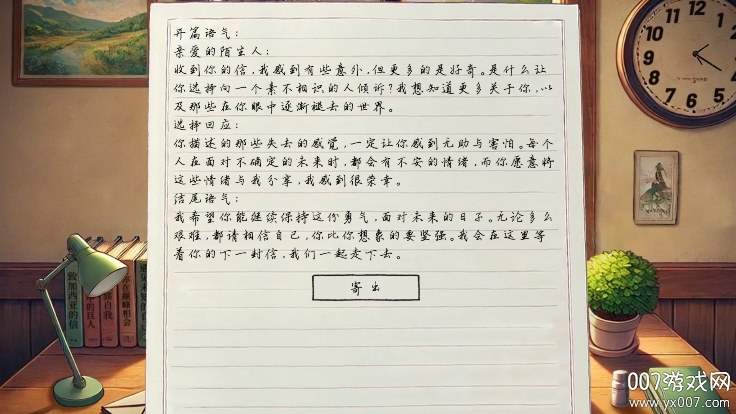 开篇语气：
亲爱的陌生人：
收到你的信，我感到有些意外，但更多的是好奇。是什么让
你选择向一个素不相识的人倾诉？我想知道更多关于你，以
及那些在你眼中逐渐褪去的世界。
选择回应：
你描述的那些失去的感觉，一定让你感到无助与害怕。每个
人在面对不确定的未来时，都会有不安的情绪，而你愿意将
这些情绪与我分享，我感到很荣幸。
结尾语气：
我希望你能继续保持这份勇气，面对未来的日子。无论多么
艰难，都请相信自己，你比你想象的要坚强。我会在这里等
着你的下一封信，我们一起走下去。
寄出
致加西亚的信
的巨人
靠自我
在巅峰相会
007游戏网
www.yx007.com